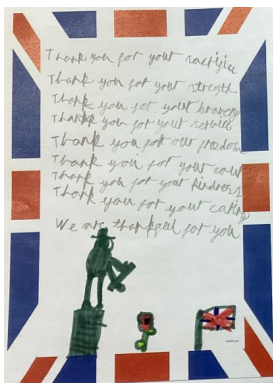 Thank you for your sacrifise
Thank you for your strength
Thank you for your bravery
Thank you for your service
Thank you for our freedom
Thank you for your
Thank you for your kindness
Thank you for your caring
We are thankful for you